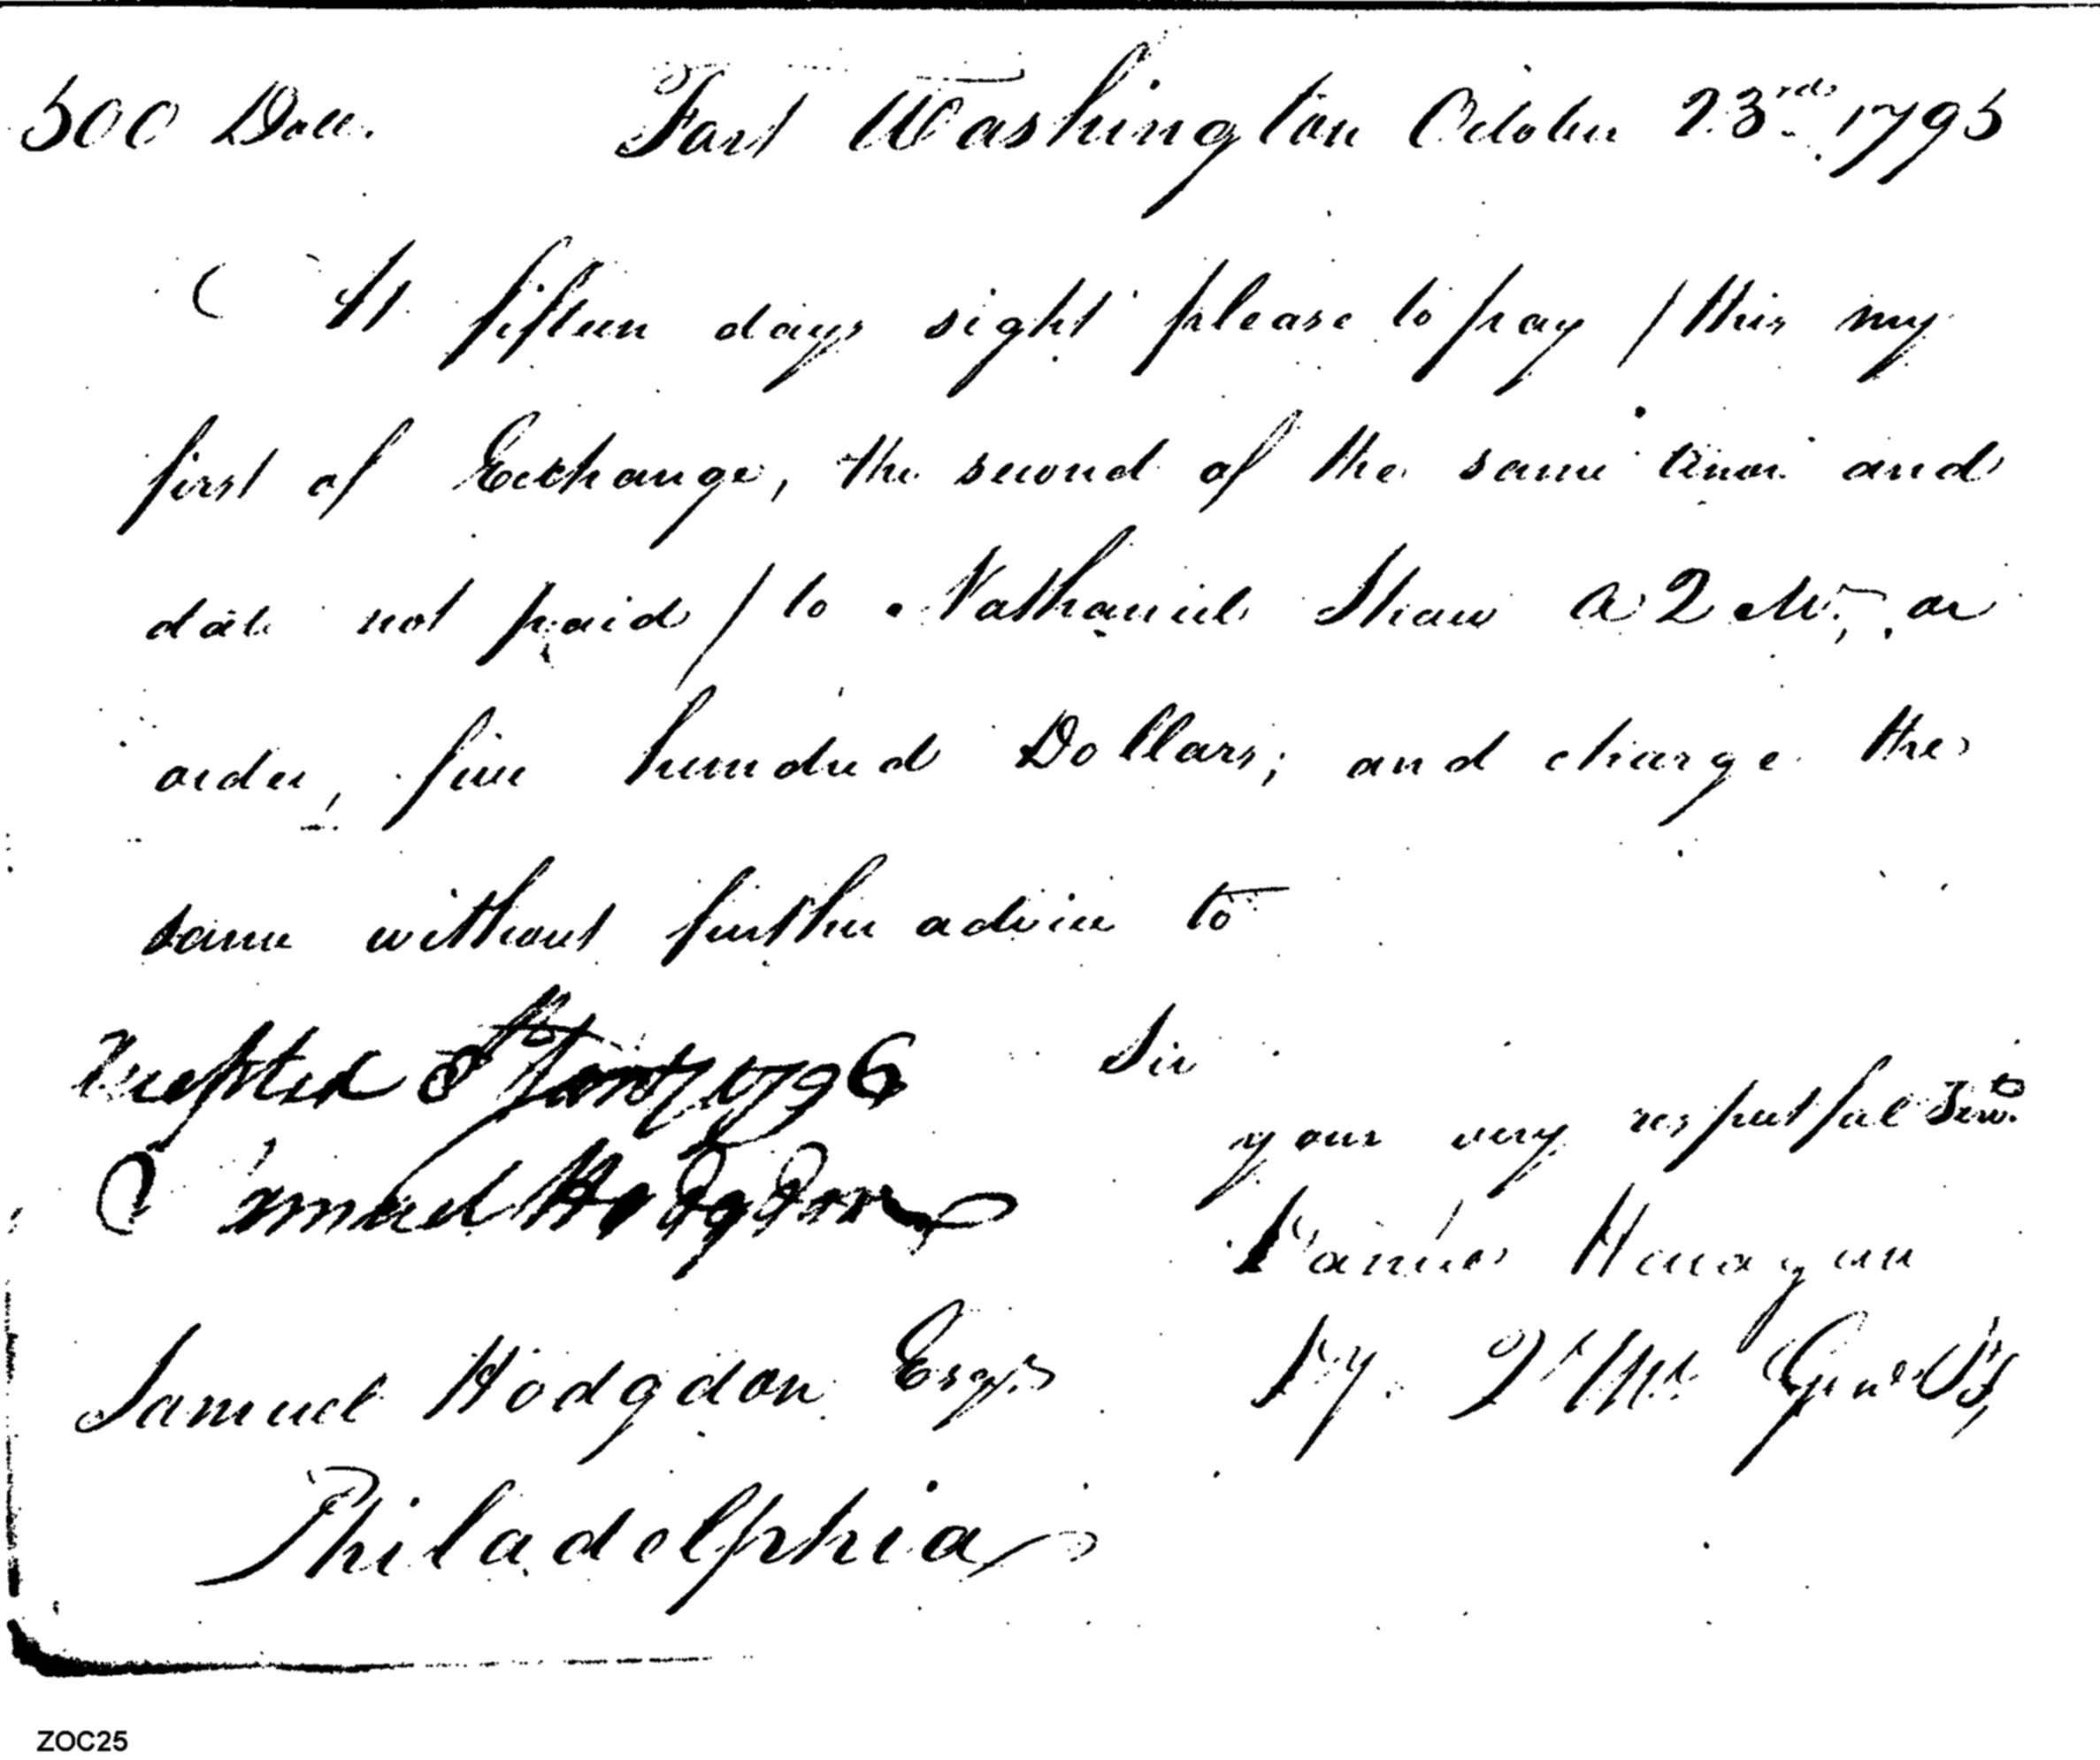 500 Doll. Fort Washington October 23rd. 1795
At fifteen days sight please to pay / this my
first of Exchange, the second of the same tenor and
date not paid / to Nathaniel Shaw A Q M., or
order, five hundred Dollars; and charge the
same without further advice to
Sir
Accepted 8 Jany 1796
your very respectful Serv.
Samuel Hodgdon
James Henagan
Samuel Hodgdon Esqr.
Philadelphia
ZOC25